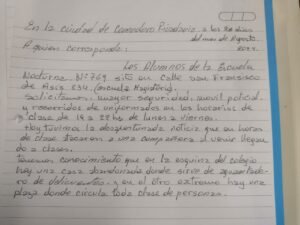 En la ciudad de Comodoro Rivadavia, a los 20 dias
del mes de Agosto
A quien corresponda:
Los Alumnos de la Escuela
Nocturna N°769 sito en calle San Francisco
de Asis 234 (escuela Magisterio).
Solicitamos: mayor seguridad, movil policial
y recorridos de uniformados en los horarios de
clase de 19 a 23 hs de lunes a viernes.
Hoy tuvimos la desafortunada noticia que en horas
de clase a una compañera al venir llegan
do a clases.
Tenemos conocimiento que en la esquina del colegio
hay una casa abandonada donde sirve de aguantade
ro de delincuentes, y en el otro extremo hay una
plaza donde circula toda clase de personas.